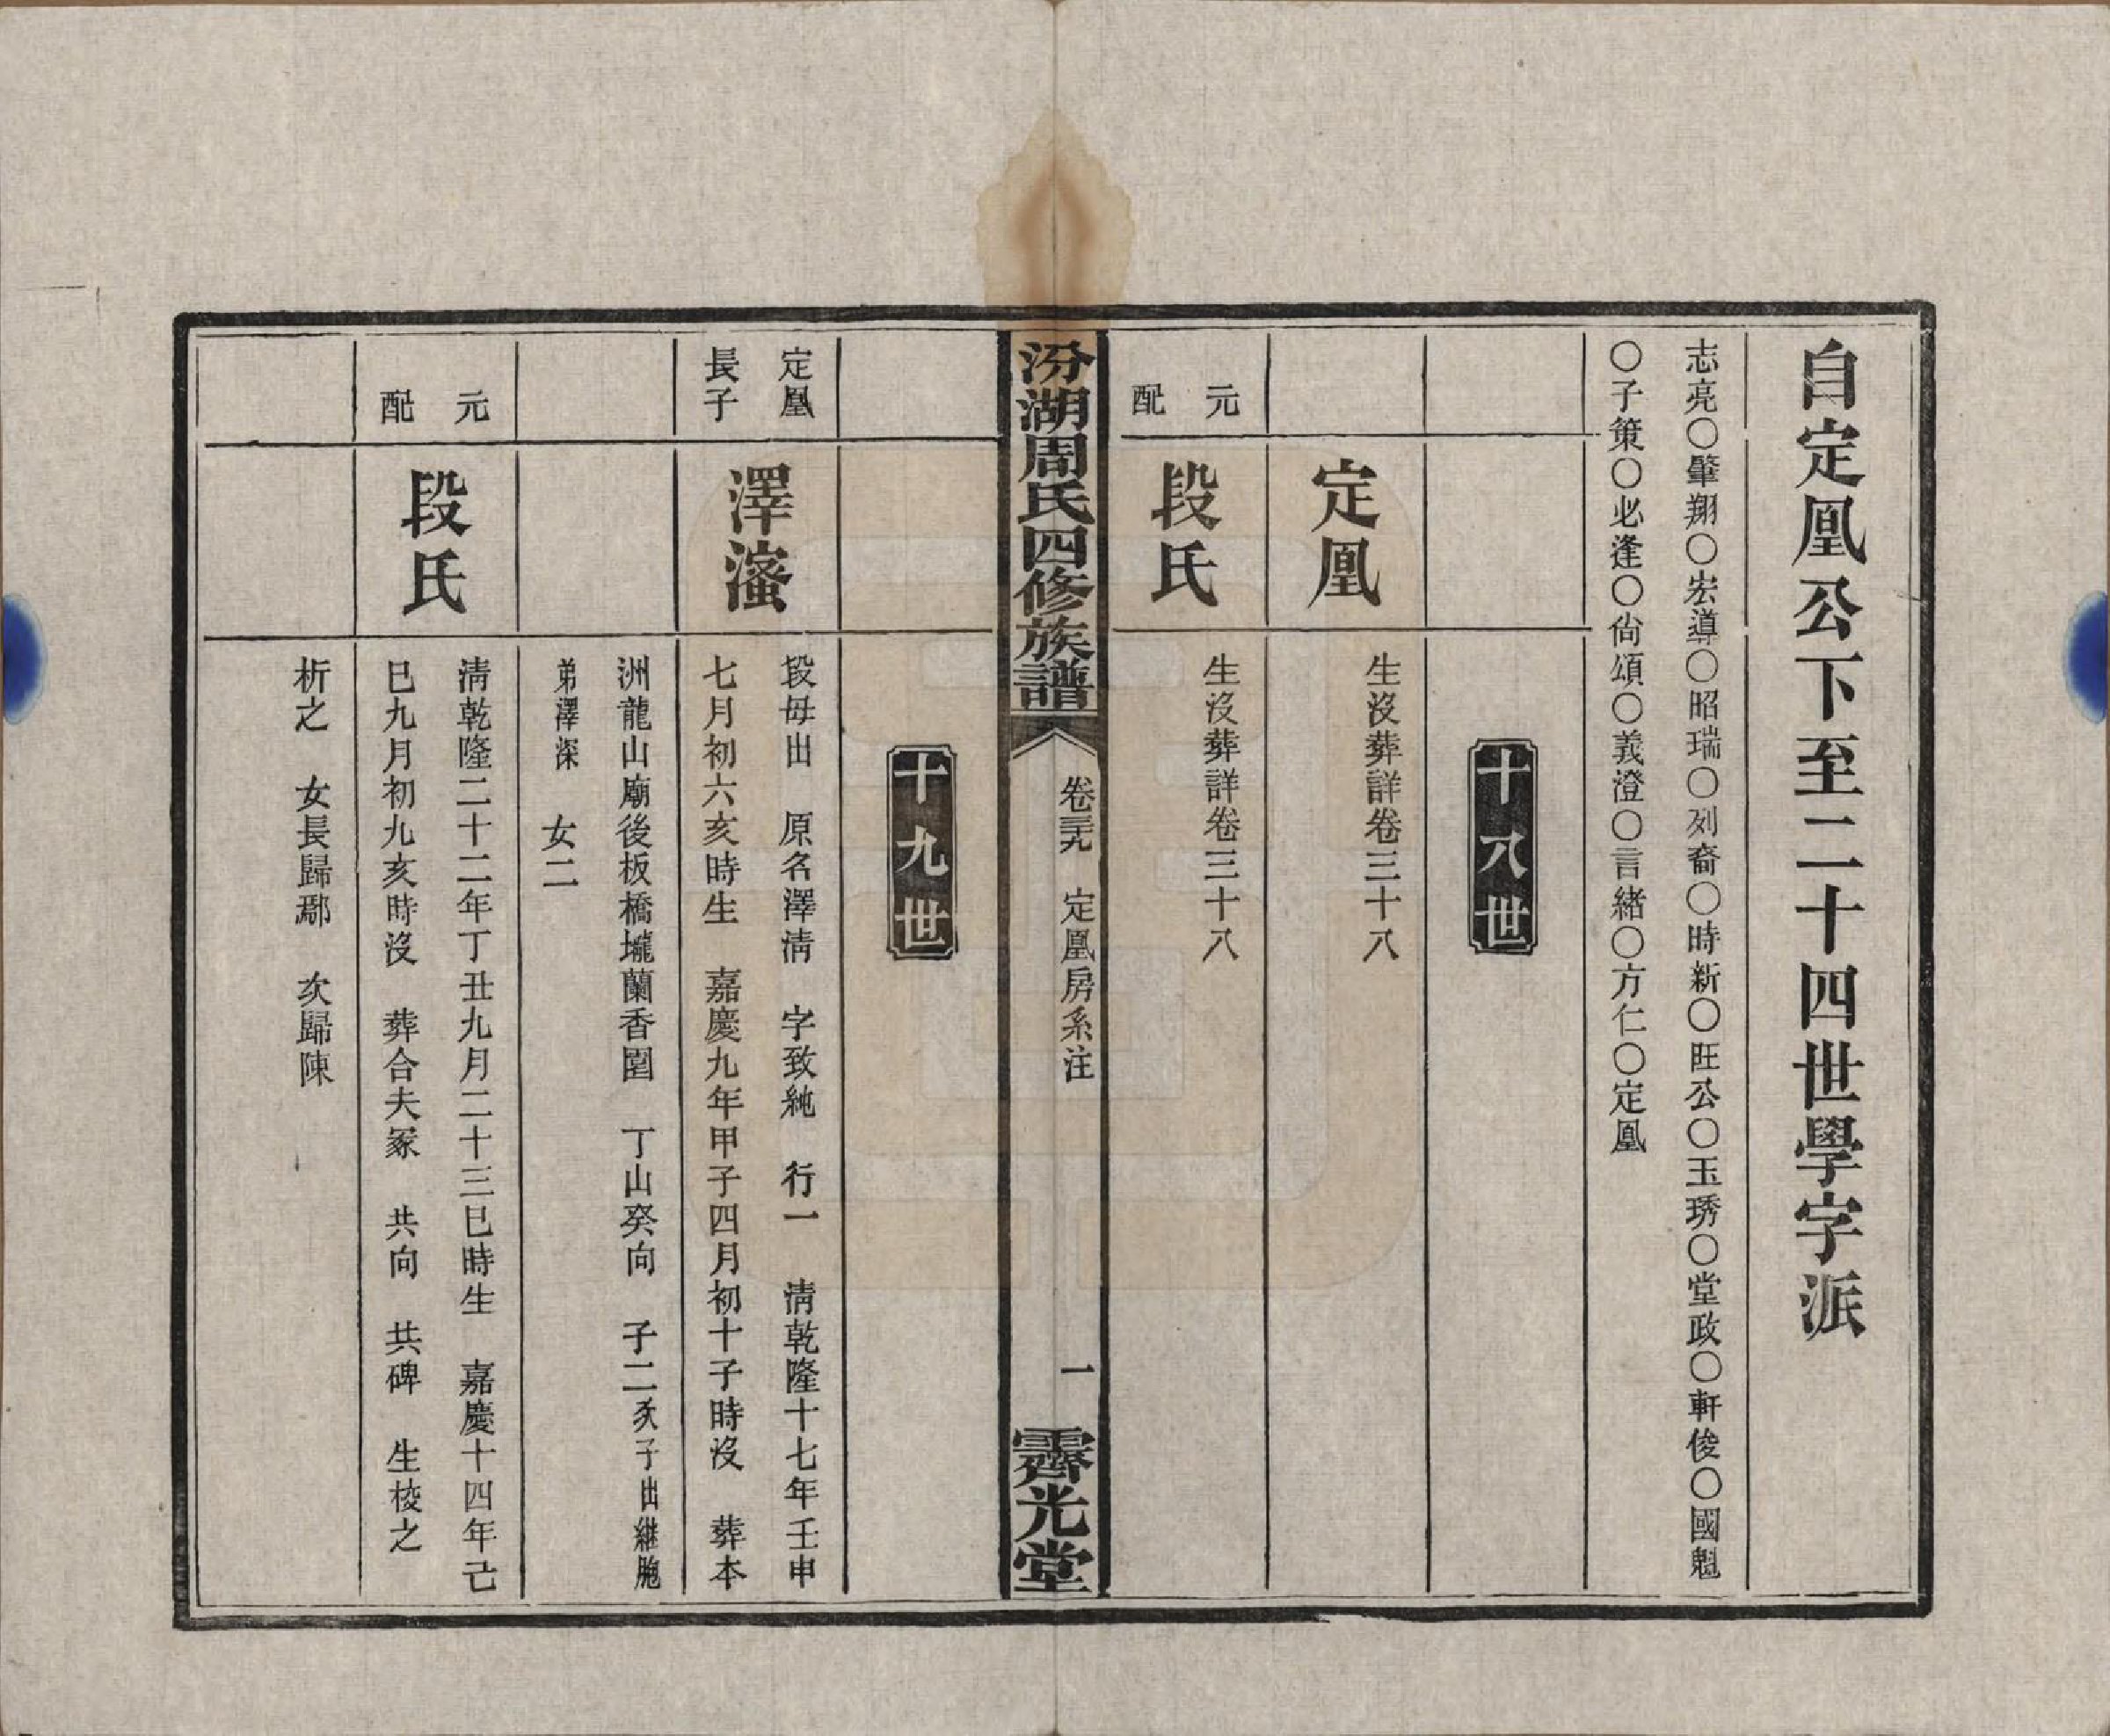 自定凰公下至二十四世學字派
志亮〇肇翔〇宏導〇昭瑞〇列裔〇時新〇旺公〇玉琇〇堂政〇軒俊〇國魁
〇子策〇必逢〇尙頌〇義澄〇言緒〇方仁〇定凰
十八世
定凰
生沒葬詳卷三十八
元配
段氏
生沒葬詳卷三十八
汾湖周氏四修族譜
卷三九 定凰房系注
一
霽光堂
十九世
定凰
長子
澤
段母出 原名澤淸 字致純 行一 淸乾隆十七年壬申
七月初六亥時生 嘉慶九年甲子四月初十子時沒 葬本
洲龍山廟後板橋壠蘭香園 丁山癸向 子二次子出繼胞
弟澤深 女二
元配
段氏
淸乾隆二十二年丁丑九月二十三巳時生 嘉慶十四年己
巳九月初九亥時沒 葬合夫冢 共向 共碑 生棱之
析之 女長歸鄢 次歸陳